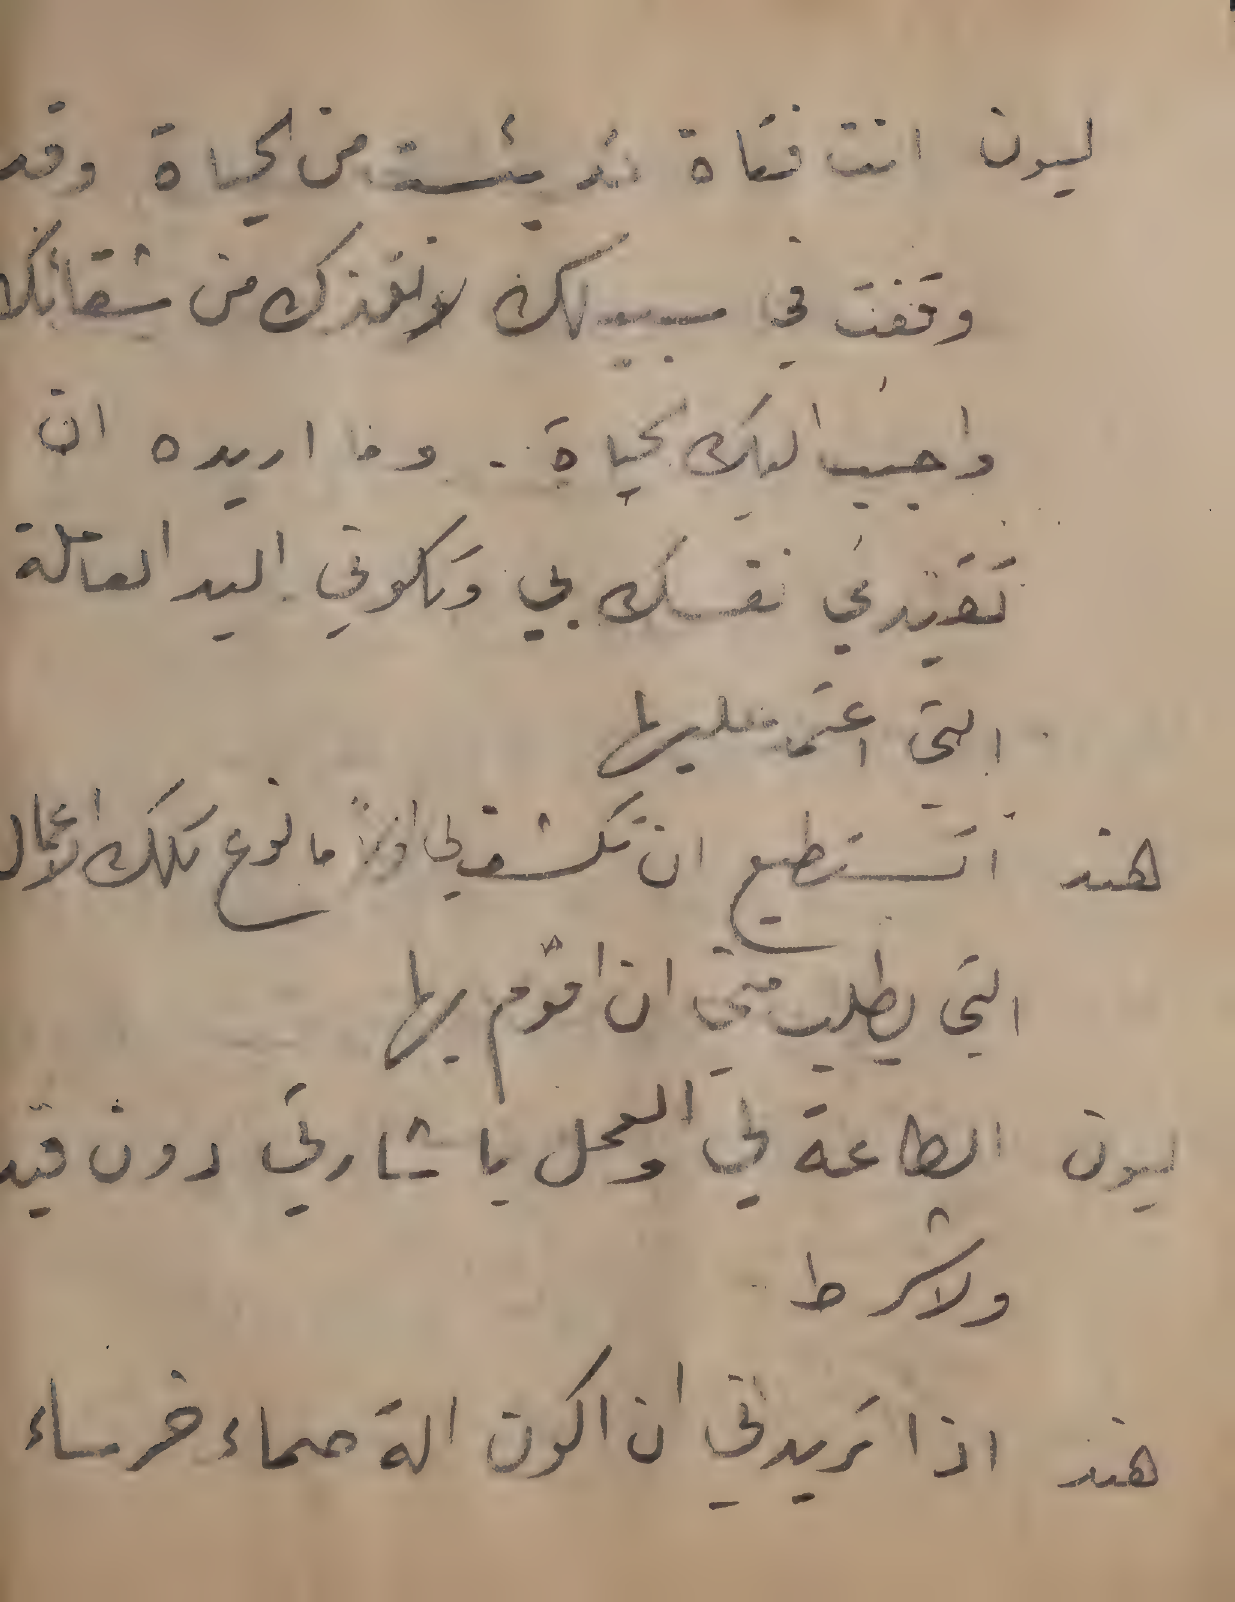 ليون انت فتاة قد يئست من الحياة وقد
وقفت في سبيلك لانقذك من شقائك
واحبب اليك الحياة . وما اريده ان
تقيدي نفسك بي وتكوني اليد العاملة
التي اعتمد عليها
هند اتستطيع ان تكشف لي اولاً ما نوع تلك الاعمال
التي يطلب مني ان اقوم بها
ليون الطاعة لي والعمل باشارتي دون قيد
ولا شرط
هند اذا تريدني ان اكون الة صماء خرساء